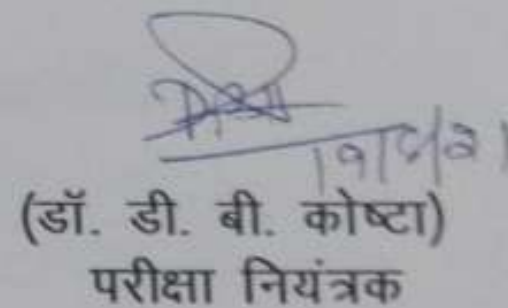 (डॉ. डी. बी. कोष्टा)
परीक्षा नियंत्रक